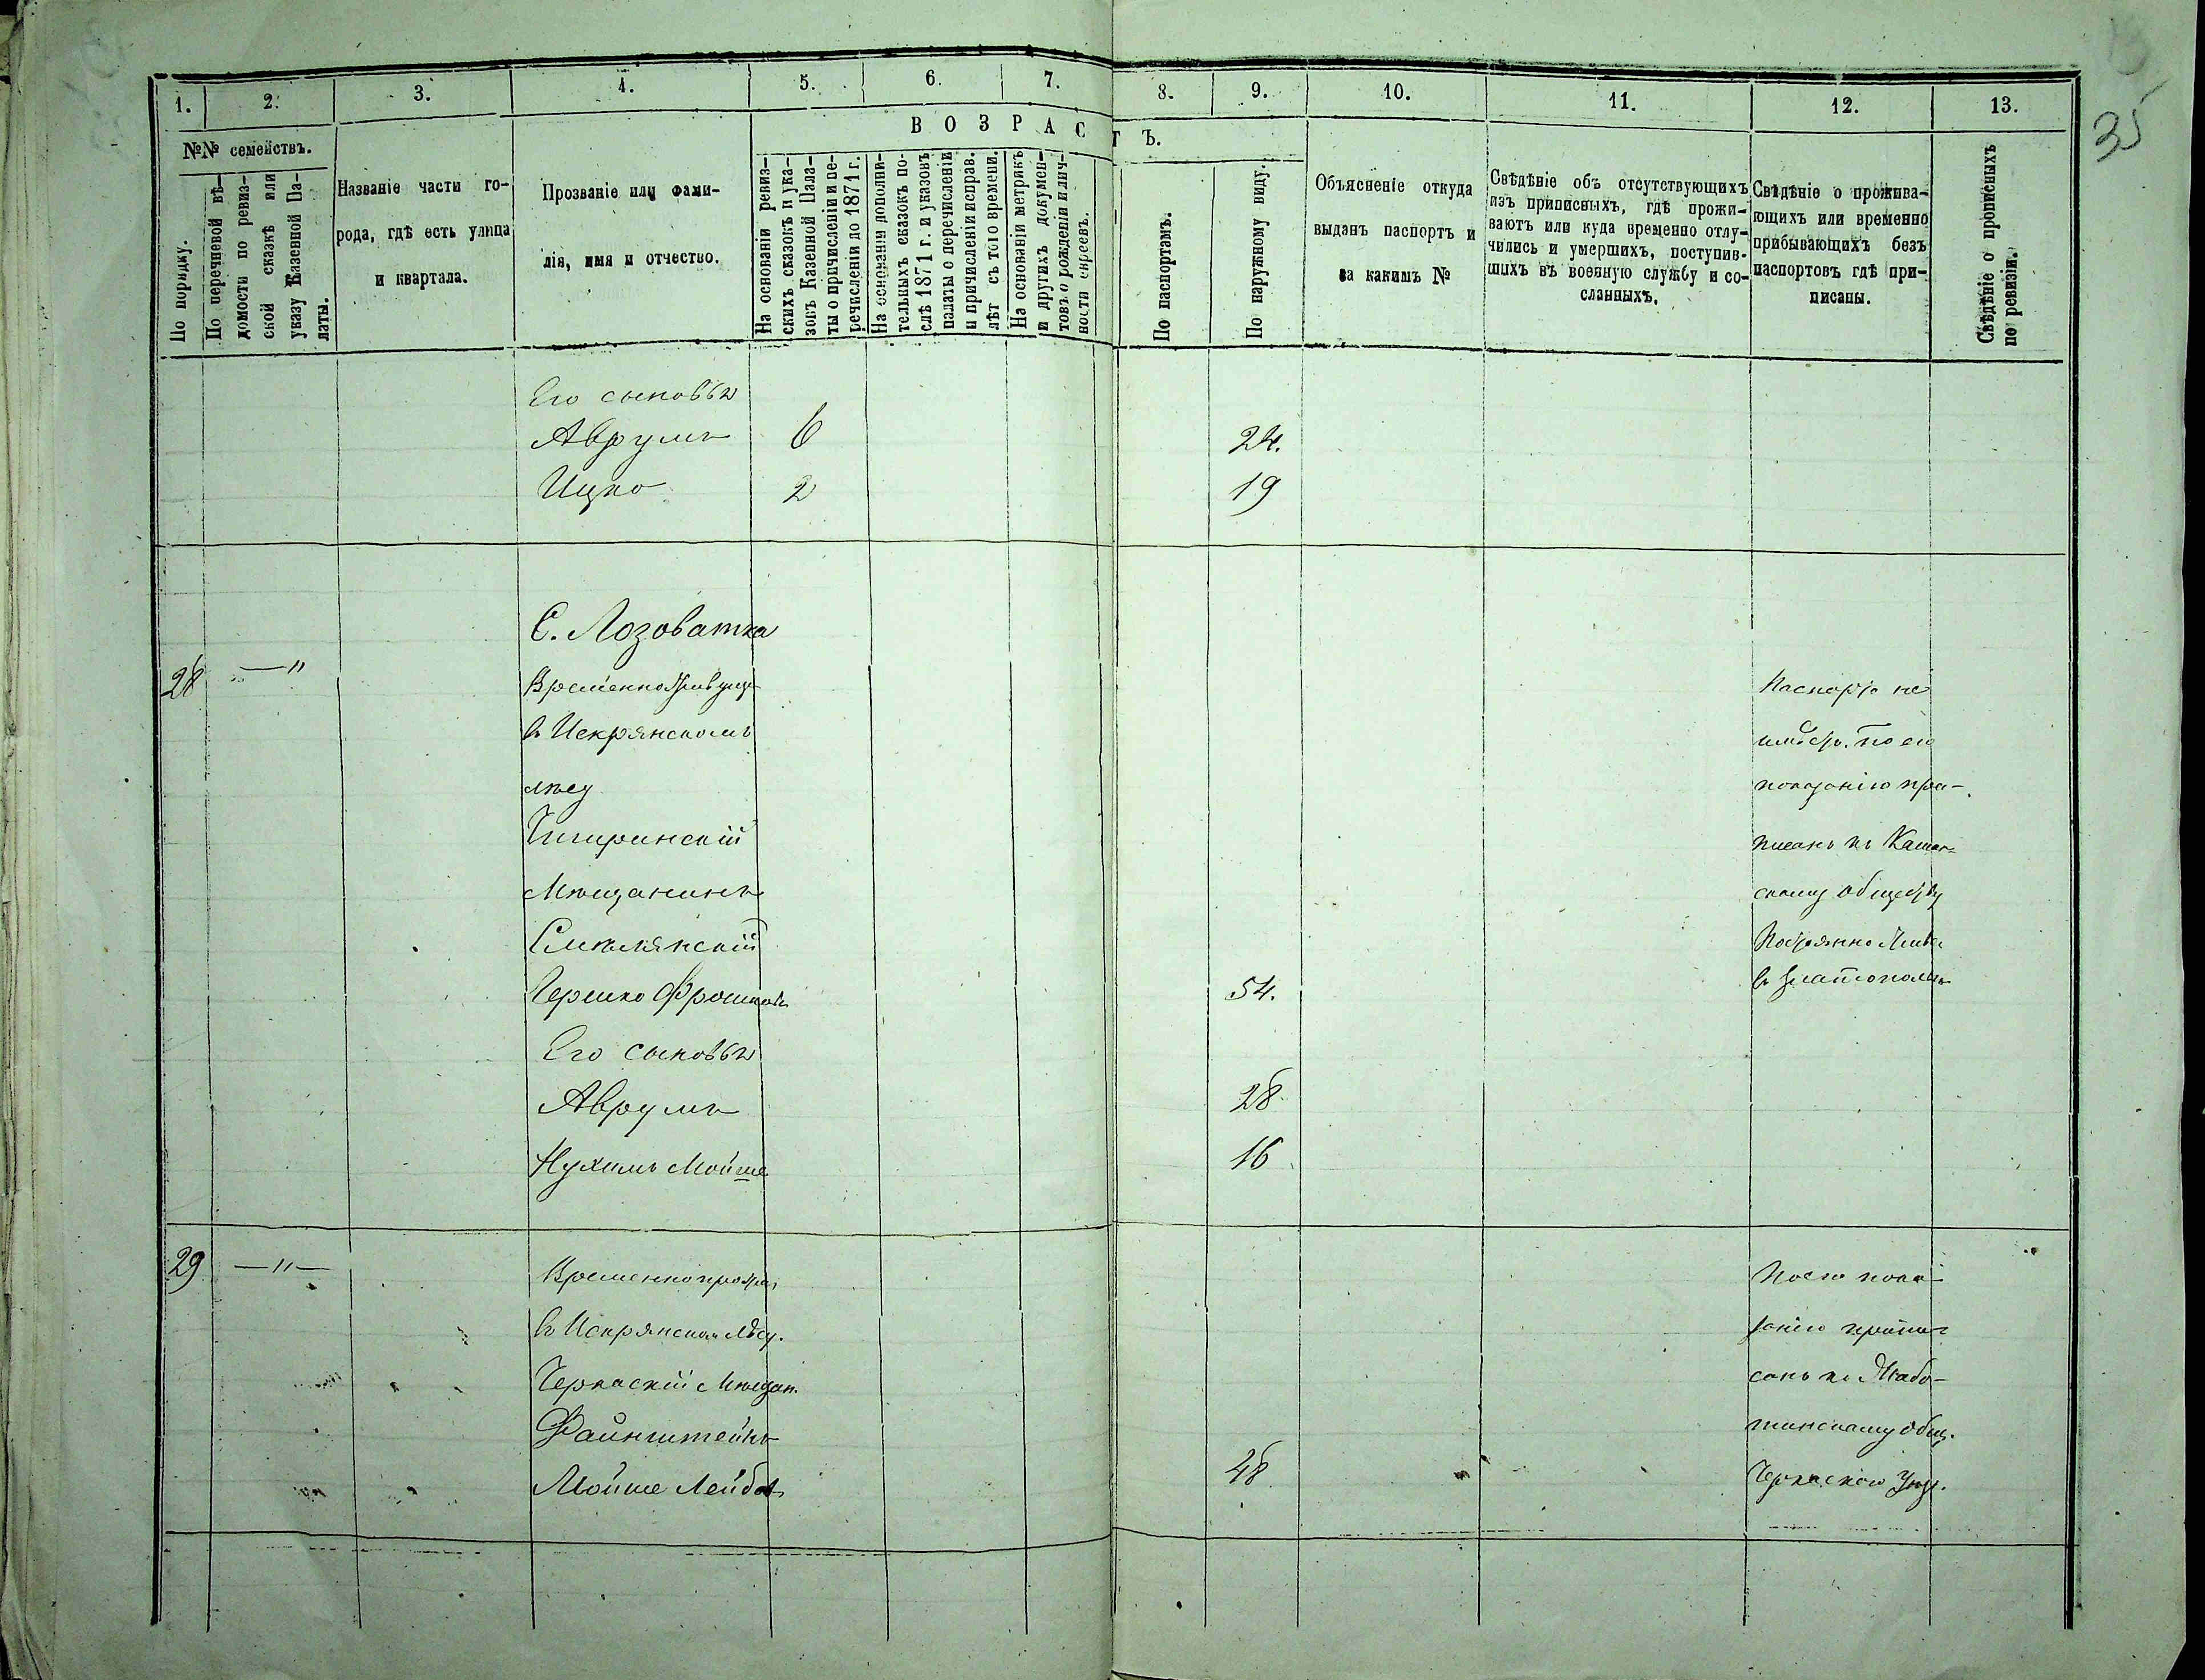 35
1. 2. 3. 4. 5. 6. 7. 8. 9. 10. 11. 12. 13.
№№ семействъ.
По порядку.
По перечневой вѣ-
домости по ревиз-
ской сказкѣ или
указу Казенной Па-
латы.
Названіе части го-
рода, гдѣ есть улица
и квартала.
Прозваніе или фами-
лія, имя и отчество.
ВОЗРАСТЪ.
На основаніи ревиз-
скихъ сказокъ и ука-
зовъ Казенной Пала-
ты о причисленіи и пе-
речисленіи до 1871 г.
На основаніи дополни-
тельныхъ сказокъ по-
слѣ 1871 г. и указовъ
палаты о перечисленіи
и причисленіи исправ.
лѣт съ того времени.
На основаніи метрикъ
и другихъ докумен-
товъ о рожденіи и лич-
ности евреевъ.
По паспортамъ.
По наружному виду.
Объясненіе откуда
выданъ паспортъ и
за какимъ №
Свѣдѣніе объ отсутствующихъ
изъ приписныхъ, гдѣ прожи-
ваютъ или куда временно отлу-
чились и умершихъ, поступив-
шихъ въ военную службу и со-
сланныхъ.
Свѣдѣніе о прожива-
ющихъ или временно
прибывающихъ безъ
паспортовъ гдѣ при-
писаны.
Свѣдѣніе о прописныхъ
по ревизіи.
Его сыновья
Аврумъ 6 24.
Ицко 2 19
С. Лозоватка
28 —"
Временно Живущ
в Искрянскомъ
лѣсу
Чигиринскій
Мѣщанинъ
Смилянскій
Гершко Фроимов 54.
Его сыновья
Аврумъ 28
Нухимъ Мойше 16
Паспорта не
имѣетъ. по его
показанію при-
писанъ къ
скому обществу
Постоянно Живе
в Златополѣ
29 —"—
Временно
в Искрянском лѣсу.
Черкаскій Мѣщан.
Файнштейнъ
Мойше Лейбов 48
По его пока-
занію припи-
санъ къ Жабо-
тинскому общ.
Черкаскаго Уѣз.